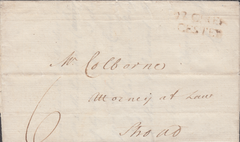 Mr Colborne
Attorney at Law
Stroud
6